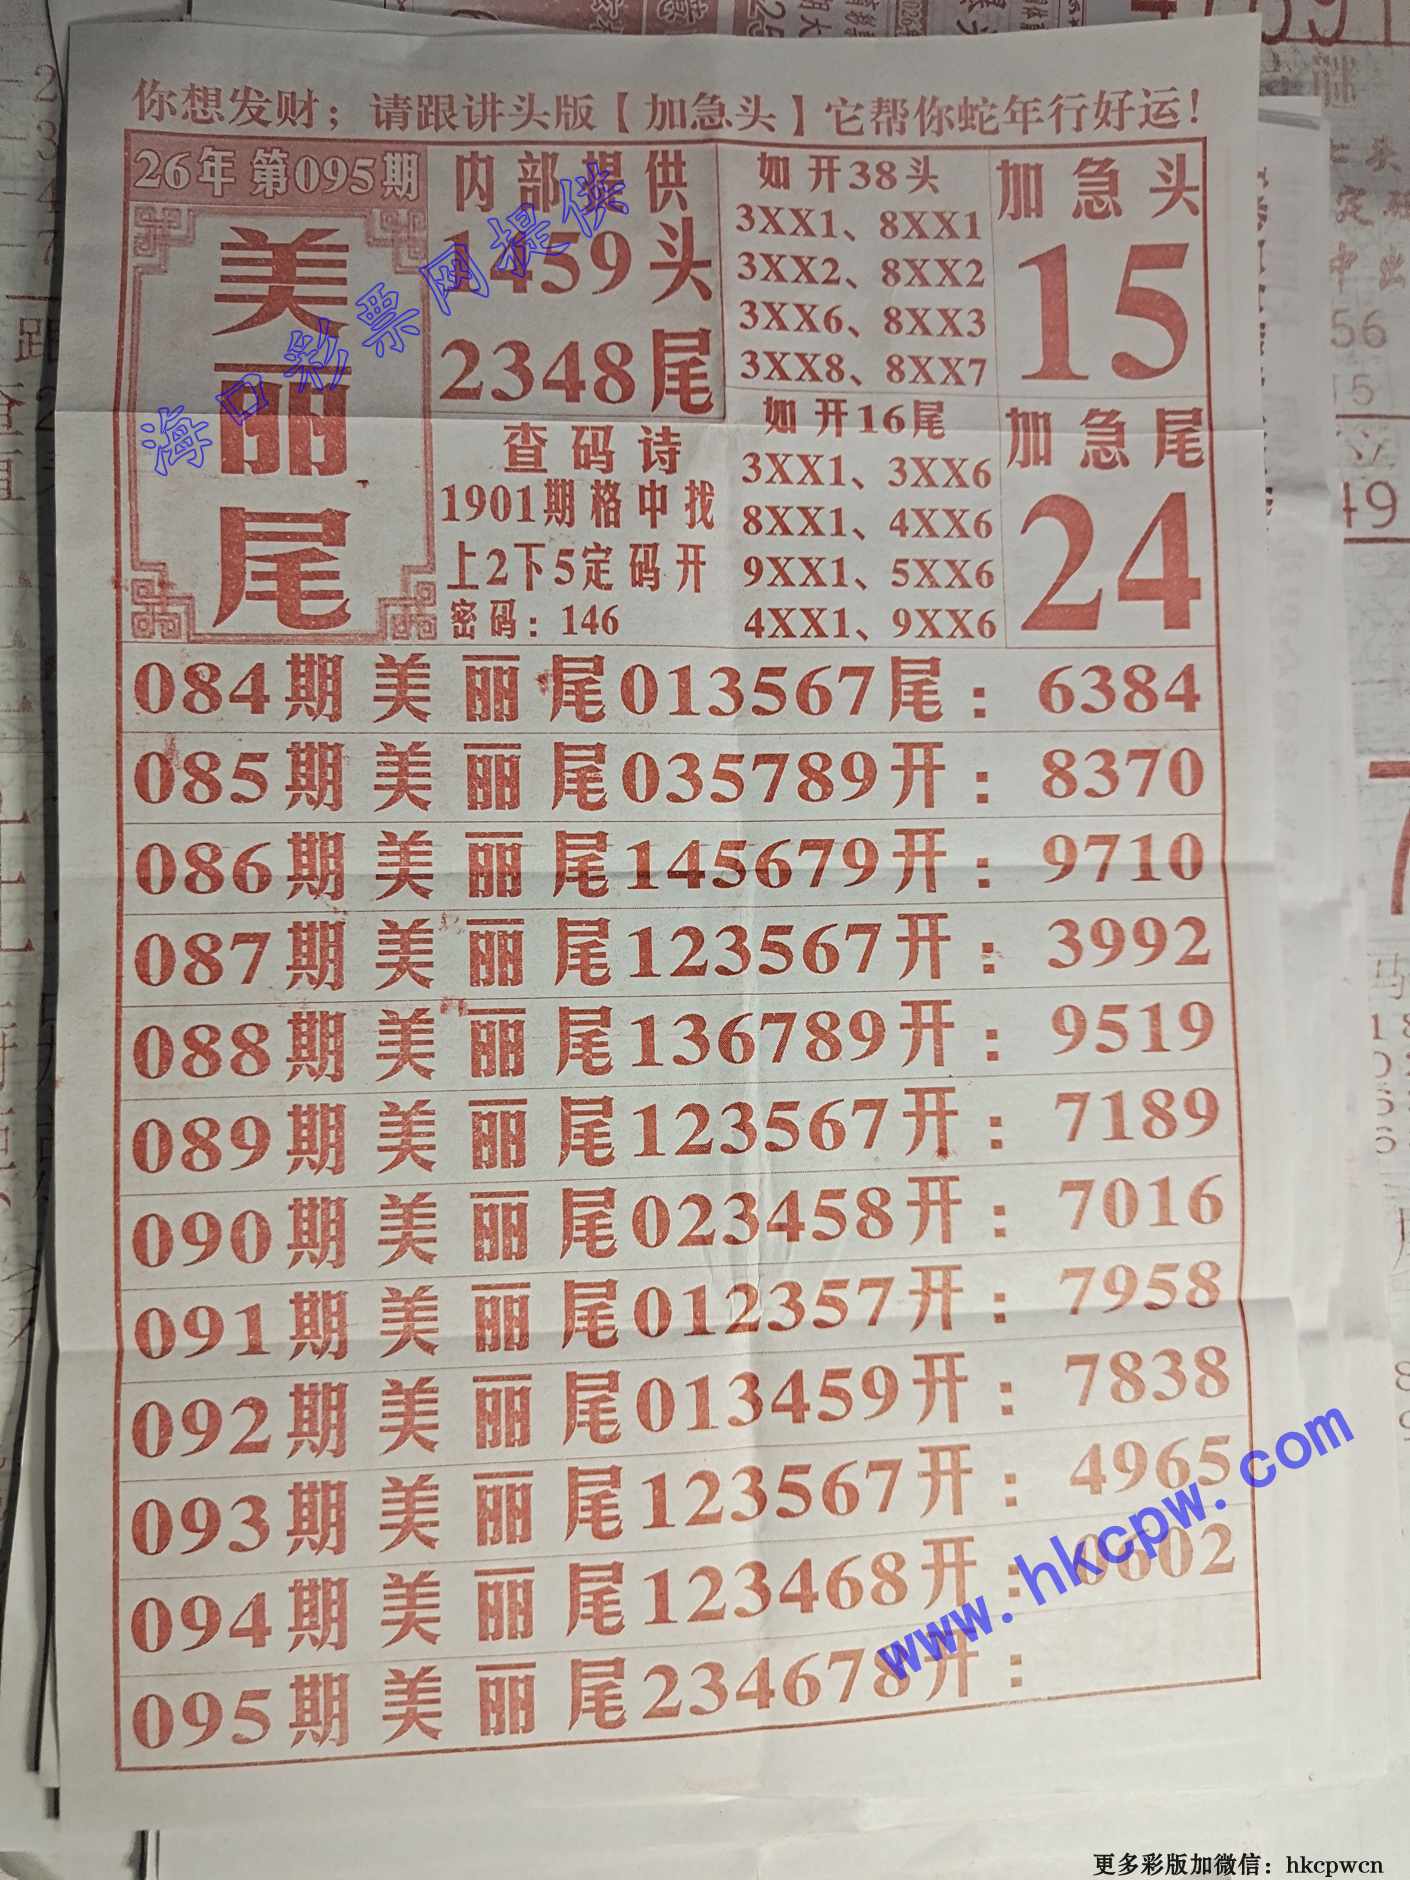 你想发财；请跟讲头版【加急头】它帮你蛇年行好运！
26年 第095期
美丽尾
内部提供
1459头
2348尾
查码诗
1901期格中找
上2下5定码开
密码：146
如开38头
3XX1、8XX1
3XX2、8XX2
3XX6、8XX3
3XX8、8XX7
如开16尾
3XX1、3XX6
8XX1、4XX6
9XX1、5XX6
4XX1、9XX6
加急头
15
加急尾
24
084期美丽尾013567尾：6384
085期美丽尾035789开：8370
086期美丽尾145679开：9710
087期美丽尾123567开：3992
088期美丽尾136789开：9519
089期美丽尾123567开：7189
090期美丽尾023458开：7016
091期美丽尾012357开：7958
092期美丽尾013459开：7838
093期美丽尾123567开：4965
094期美丽尾123468开：0602
095期美丽尾234678开：
海口彩票网提供
www.hkcpw.com
更多彩版加微信：hkcpwcn